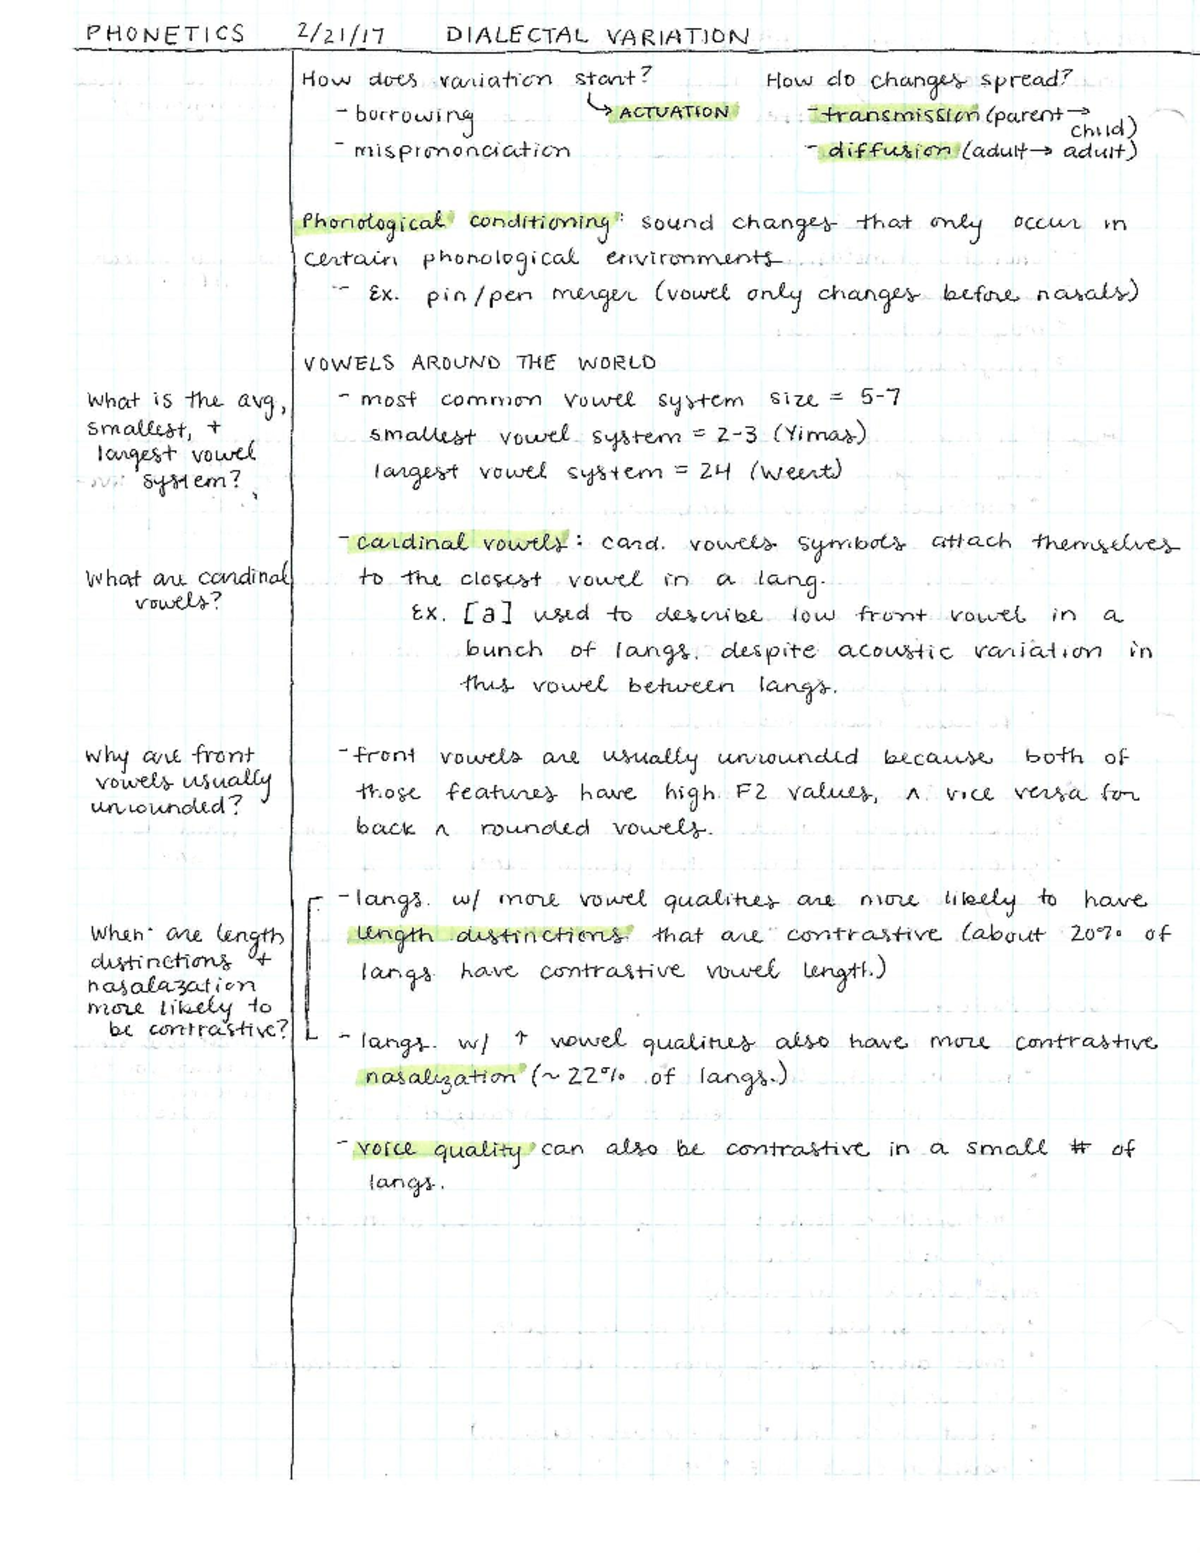 PHONETICS 2/21/17 DIALECTAL VARIATION
How does variation start? How do changes spread?
- borrowing ↳ ACTUATION - transmission (parent → child)
- misprononciation - diffusion (adult → adult)
Phonological conditioning: sound changes that only occur in
certain phonological environments
- Ex. pin/pen merger (vowel only changes before nasals)
VOWELS AROUND THE WORLD
What is the avg,
smallest, +
largest vowel
system?
- most common vowel system size = 5-7
smallest vowel system = 2-3 (Yimas)
largest vowel system = 24 (Weert)
What are cardinal
vowels?
- cardinal vowels: card. vowels symbols attach themselves
to the closest vowel in a lang.
Ex. [a] used to describe low front vowel in a
bunch of langs. despite acoustic variation in
this vowel between langs.
Why are front
vowels usually
unrounded?
- front vowels are usually unrounded because both of
those features have high F2 values, ∧ vice versa for
back ∧ rounded vowels.
When are length
distinctions +
nasalazation
more likely to
be contrastive?
- langs. w/ more vowel qualities are more likely to have
length distinctions that are contrastive (about 20% of
langs have contrastive vowel length.)
- langs. w/ ↑ vowel qualities also have more contrastive
nasalization (~22% of langs.)
- voice quality can also be contrastive in a small # of
langs.